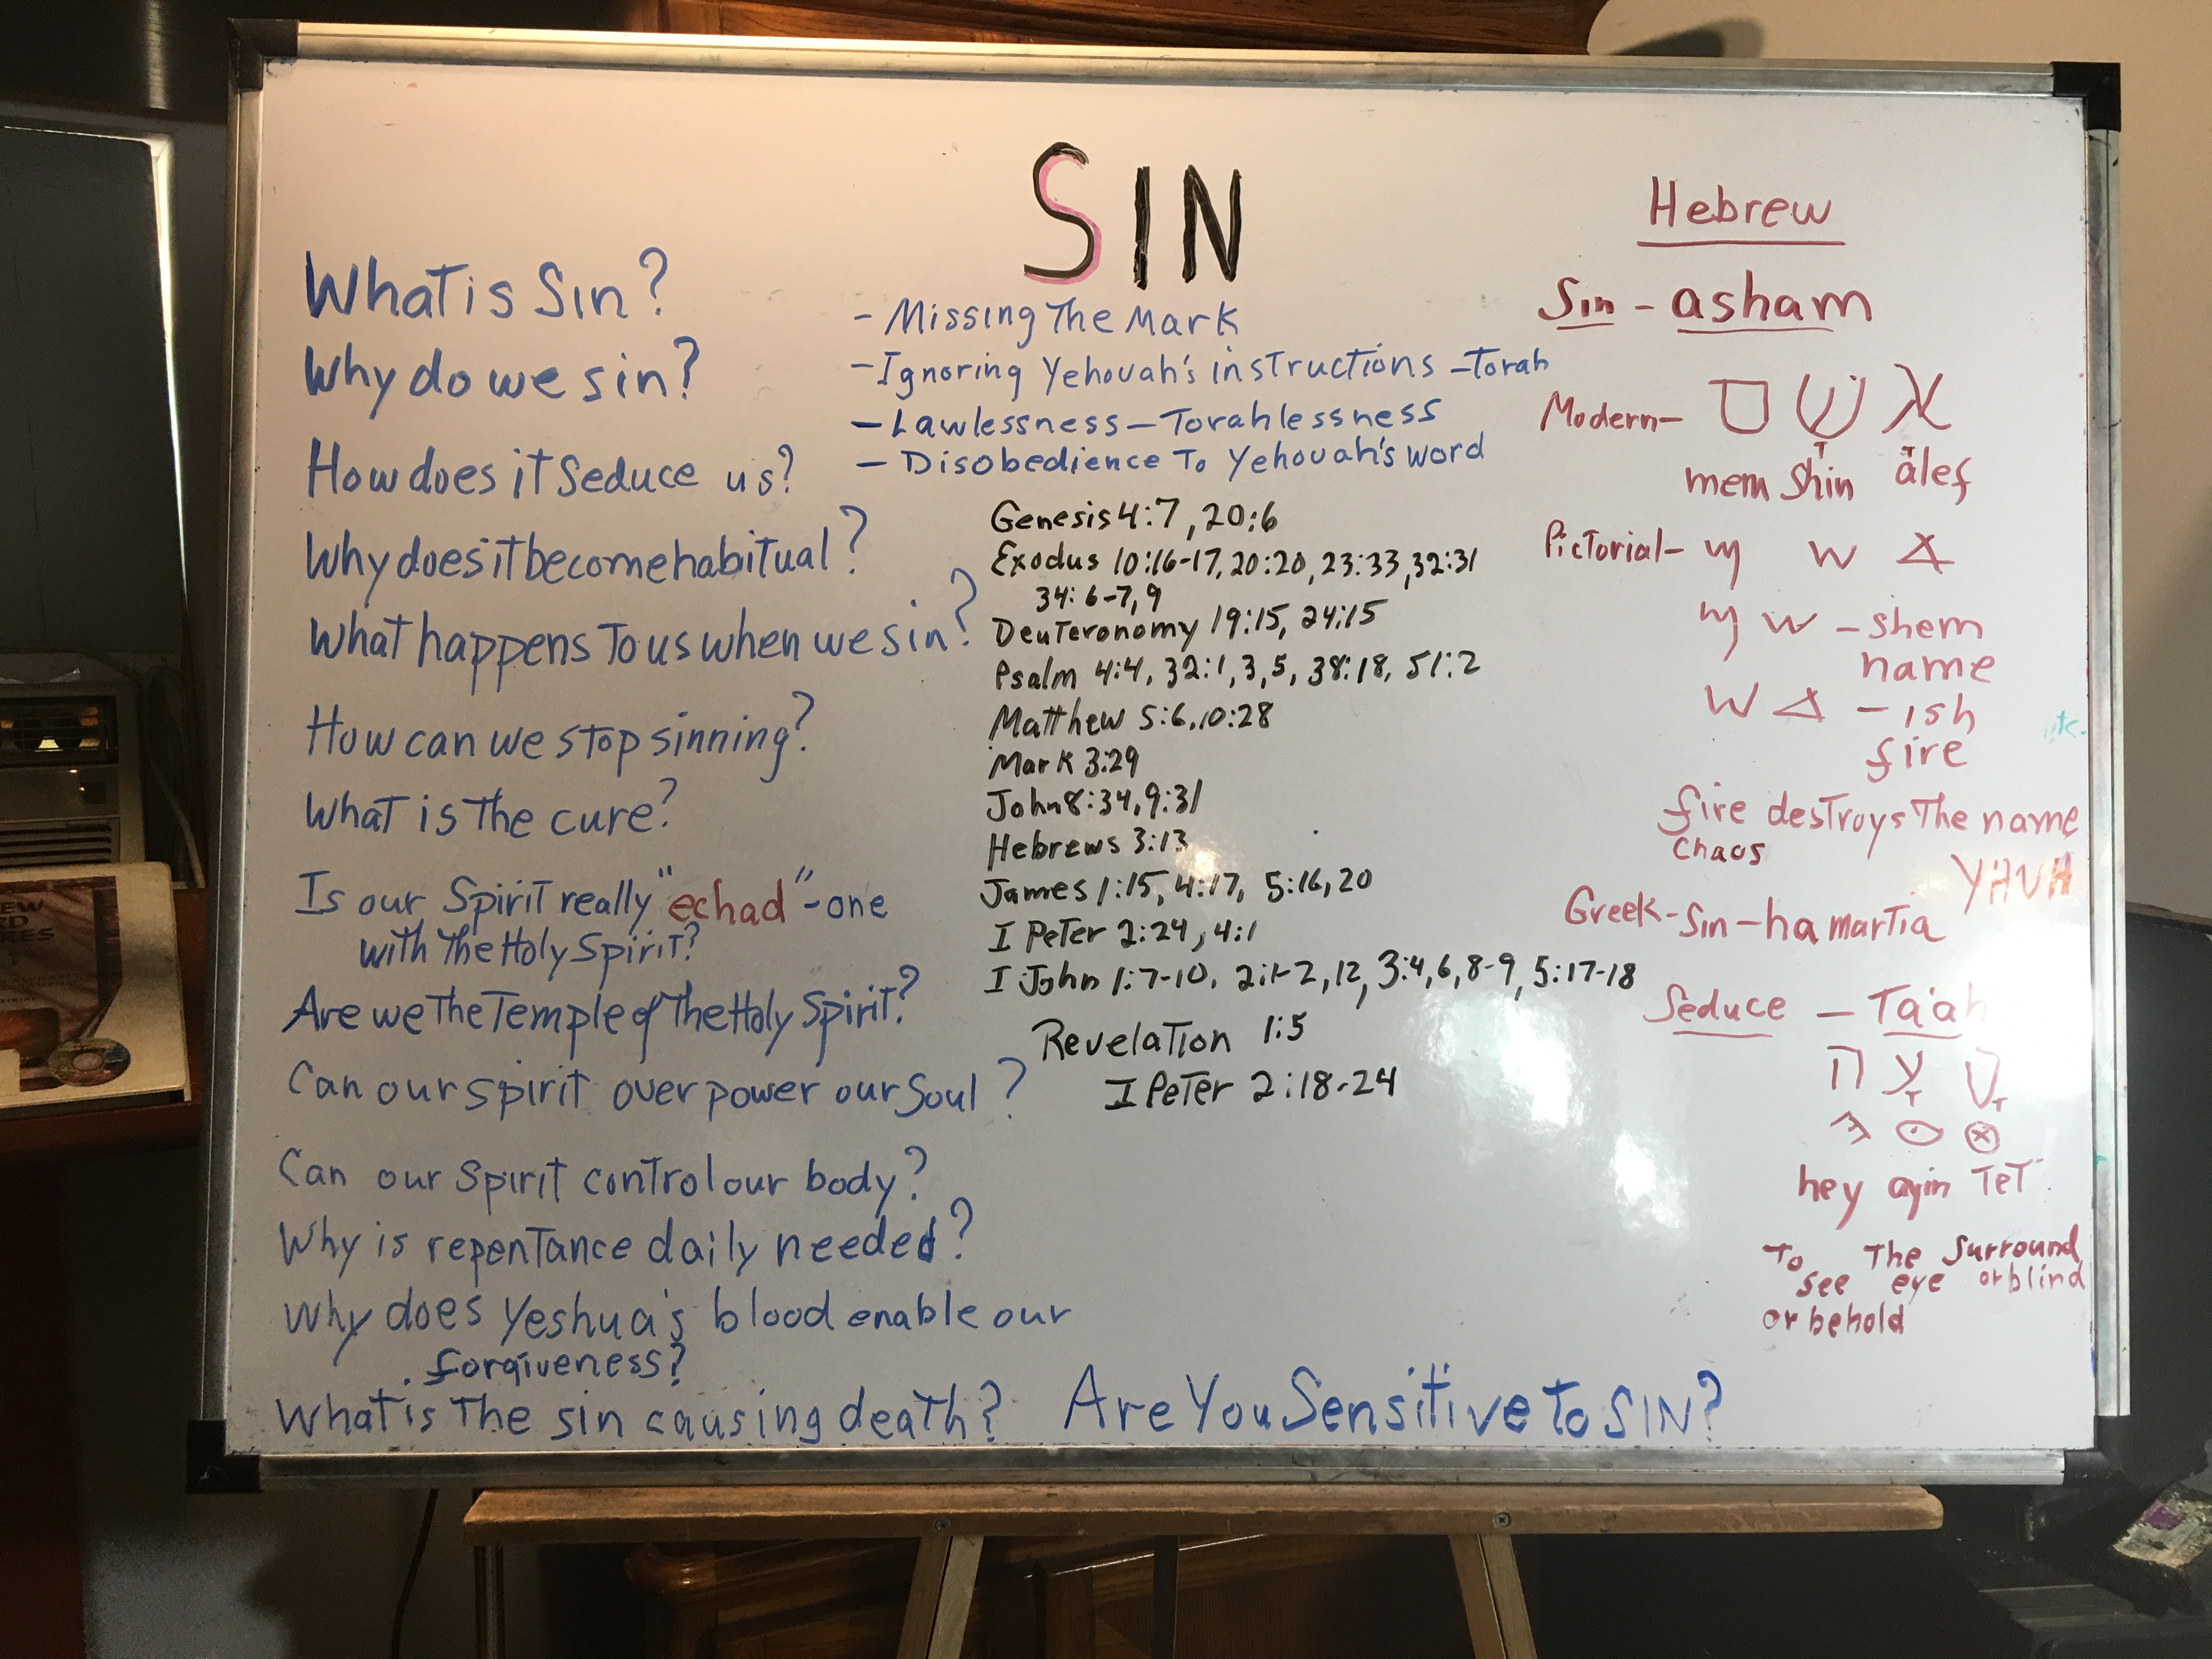 SIN
What is Sin?
Why do we sin?
How does it Seduce us?
Why does it become habitual?
What happens To us when we sin?
How can we stop sinning?
What is The cure?
Is our Spirit really "echad"-one
with The Holy Spirit?
Are we The Temple of The Holy Spirit?
Can our spirit over power our Soul?
Can our Spirit control our body?
Why is repentance daily needed?
Why does Yeshua's blood enable our
forgiveness?
What is The sin causing death?
- Missing The Mark
- Ignoring Yehovah's instructions - Torah
- Lawlessness - Torahlessness
- Disobedience To Yehovah's word
Genesis 4:7, 20:6
Exodus 10:16-17, 20:20, 23:33, 32:31
34:6-7, 9
Deuteronomy 19:15, 24:15
Psalm 4:4, 32:1, 3, 5, 38:18, 51:2
Matthew 5:6, 10:28
Mark 3:29
John 8:34, 9:31
Hebrews 3:13
James 1:15, 4:17, 5:16, 20
I Peter 2:24, 4:1
I John 1:7-10, 2:1-2, 12, 3:4, 6, 8-9, 5:17-18
Revelation 1:5
I Peter 2:18-24
Are You Sensitive To SIN?
Hebrew
Sin - asham
Modern - אָשָׁם
mem Shin alef
Pictorial - 𐤌 𐤔 𐤀
𐤌 𐤔 - shem
name
𐤔 𐤀 - ish
fire
fire destroys The name
chaos
YHVH
Greek - Sin - hamartia
Seduce - Ta'ah
טָעָה
hey ayin TeT
To see The eye Surround
or behold or blind